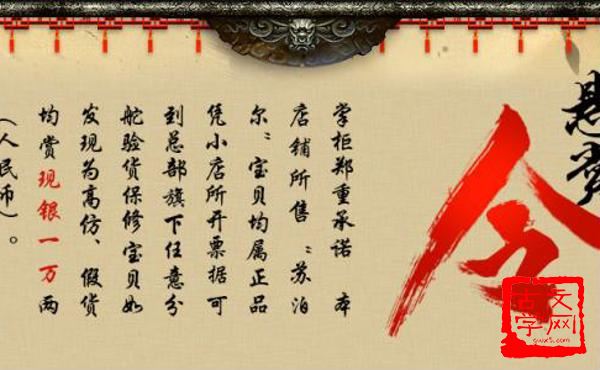 悬赏
令
掌柜郑重承诺 本
店铺所售:苏泊
尔:宝贝均属正品
凭小店所开票据可
到总部旗下任意分
舵验货保修宝贝如
发现为高仿、假货
均赏现银一万两
(人民币)。
古文学网
gwx5.com